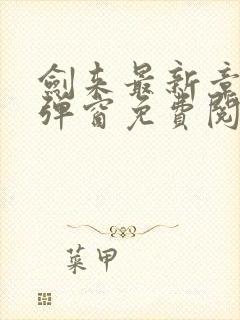 劍来最新章
弹窗免費閱
菜甲